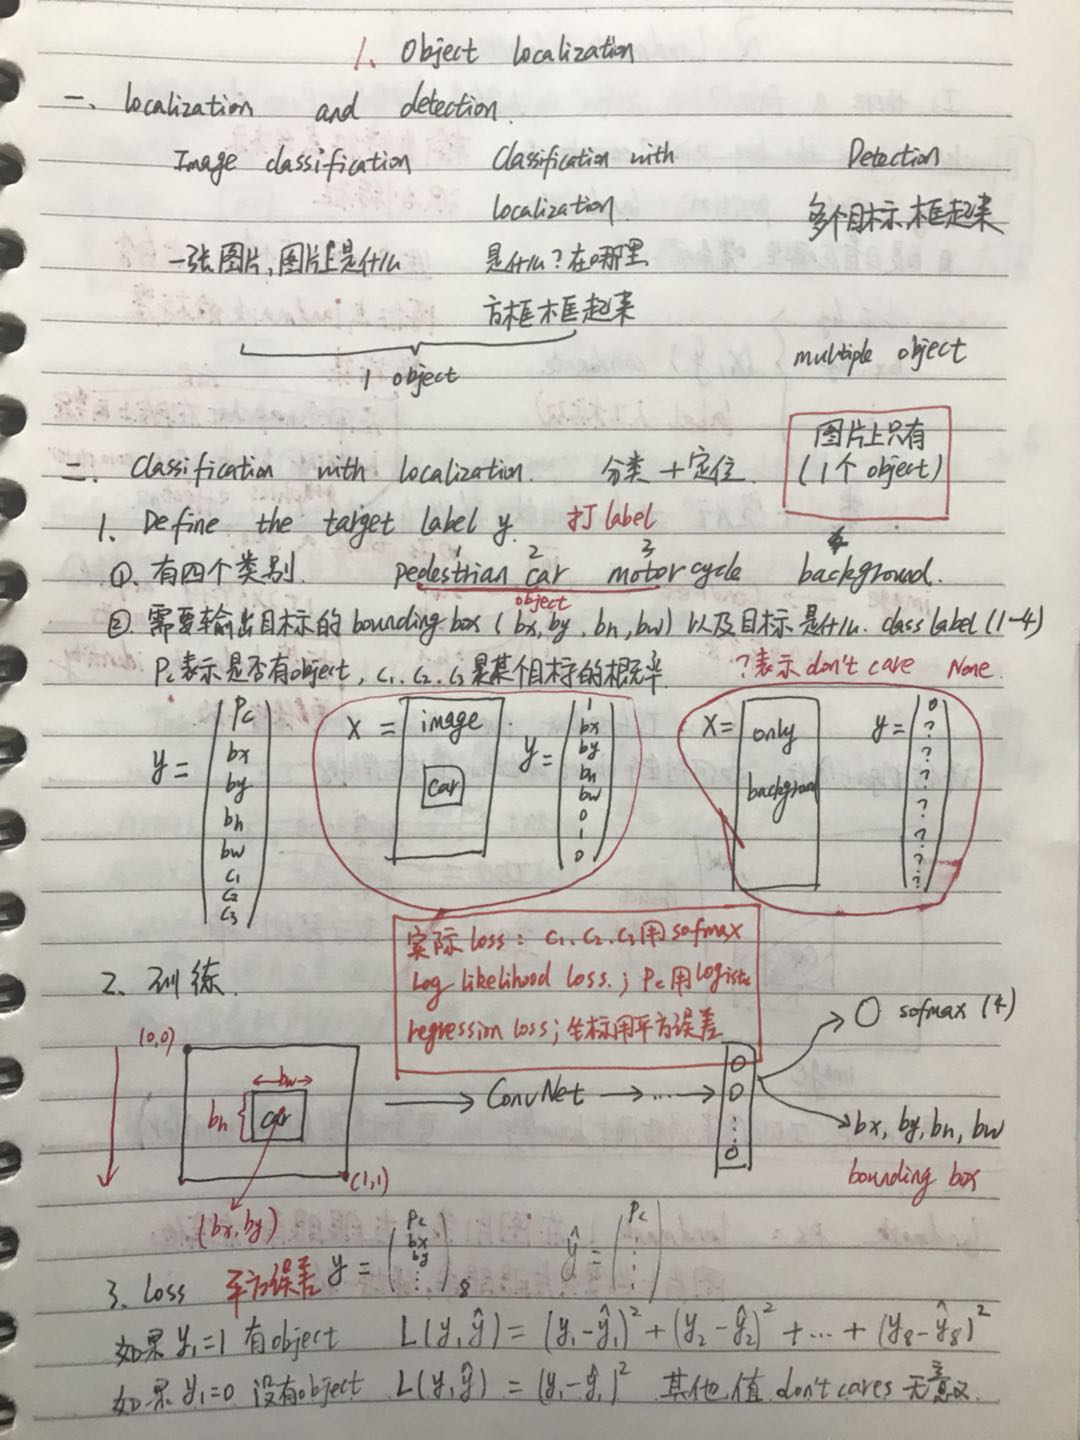 1. Object localization
一、localization and detection.
Image classification
Classification with localization.
Detection
一张图片,图片上是什么
是什么?在哪里
方框框起来
多个目标,框起来
1 object
multiple object
图片上只有
(1个object)
二、Classification with localization. 分类+定位.
1. Define the target label y. 打label
①. 有四个类别. 1 pedestrian 2 car 3 motorcycle 4 background.
object
②. 需要输出目标的bounding box (bx, by, bh, bw) 以及目标是什么. class label (1-4)
Pc表示是否有object, c1. c2. c3是某个目标的概率
?表示don't care None.
y = Pc bx by bh bw c1 c2 c3
X = image car
y = 1 bx by bh bw 0 1 0
X = only background
y = 0 ? ? ? ? ? ? ?
实际loss: c1. c2. c3用sofmax
log likelihood loss.; Pc用logistic
regression loss; 坐标用平方误差
2. 训练.
(0,0)
bw
bh
car
(1,1)
(bx, by)
→ ConvNet → ... →
0 0 ⋮ 0
sofmax (4)
bx, by, bh, bw
bounding box
3. loss 平方误差 y = (Pc bx by ⋮) 8 ŷ = (Pc ⋮)
如果y1=1 有object L(y,ŷ) = (y1-ŷ1)² + (y2-ŷ2)² + ... + (y8-ŷ8)²
如果y1=0 没有object L(y,ŷ) = (y1-ŷ1)² 其他值don't cares 无意义.